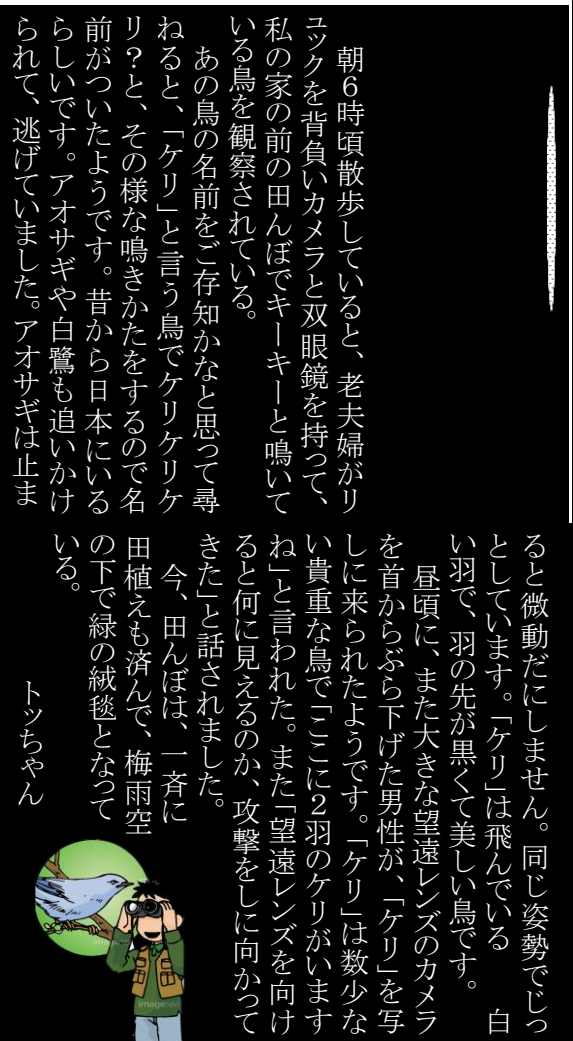 朝6時頃散歩していると、老夫婦がリ
ュックを背負いカメラと双眼鏡を持って、
私の家の前の田んぼでキーキーと鳴いて
いる鳥を観察されている。
あの鳥の名前をご存知かなと思って尋
ねると、「ケリ」と言う鳥でケリケリケ
リ？と、その様な鳴きかたをするので名
前がついたようです。昔から日本にいる
らしいです。アオサギや白鷺も追いかけ
られて、逃げていました。アオサギは止ま
ると微動だにしません。同じ姿勢でじっ
としています。「ケリ」は飛んでいる　　白
い羽で、羽の先が黒くて美しい鳥です。
昼頃に、また大きな望遠レンズのカメラ
を首からぶら下げた男性が、「ケリ」を写
しに来られたようです。「ケリ」は数少な
い貴重な鳥で「ここに2羽のケリがいます
ね」と言われた。また「望遠レンズを向け
ると何に見えるのか、攻撃をしに向かって
きた」と話されました。
今、田んぼは、一斉に
田植えも済んで、梅雨空
の下で緑の絨毯となって
いる。
トッちゃん